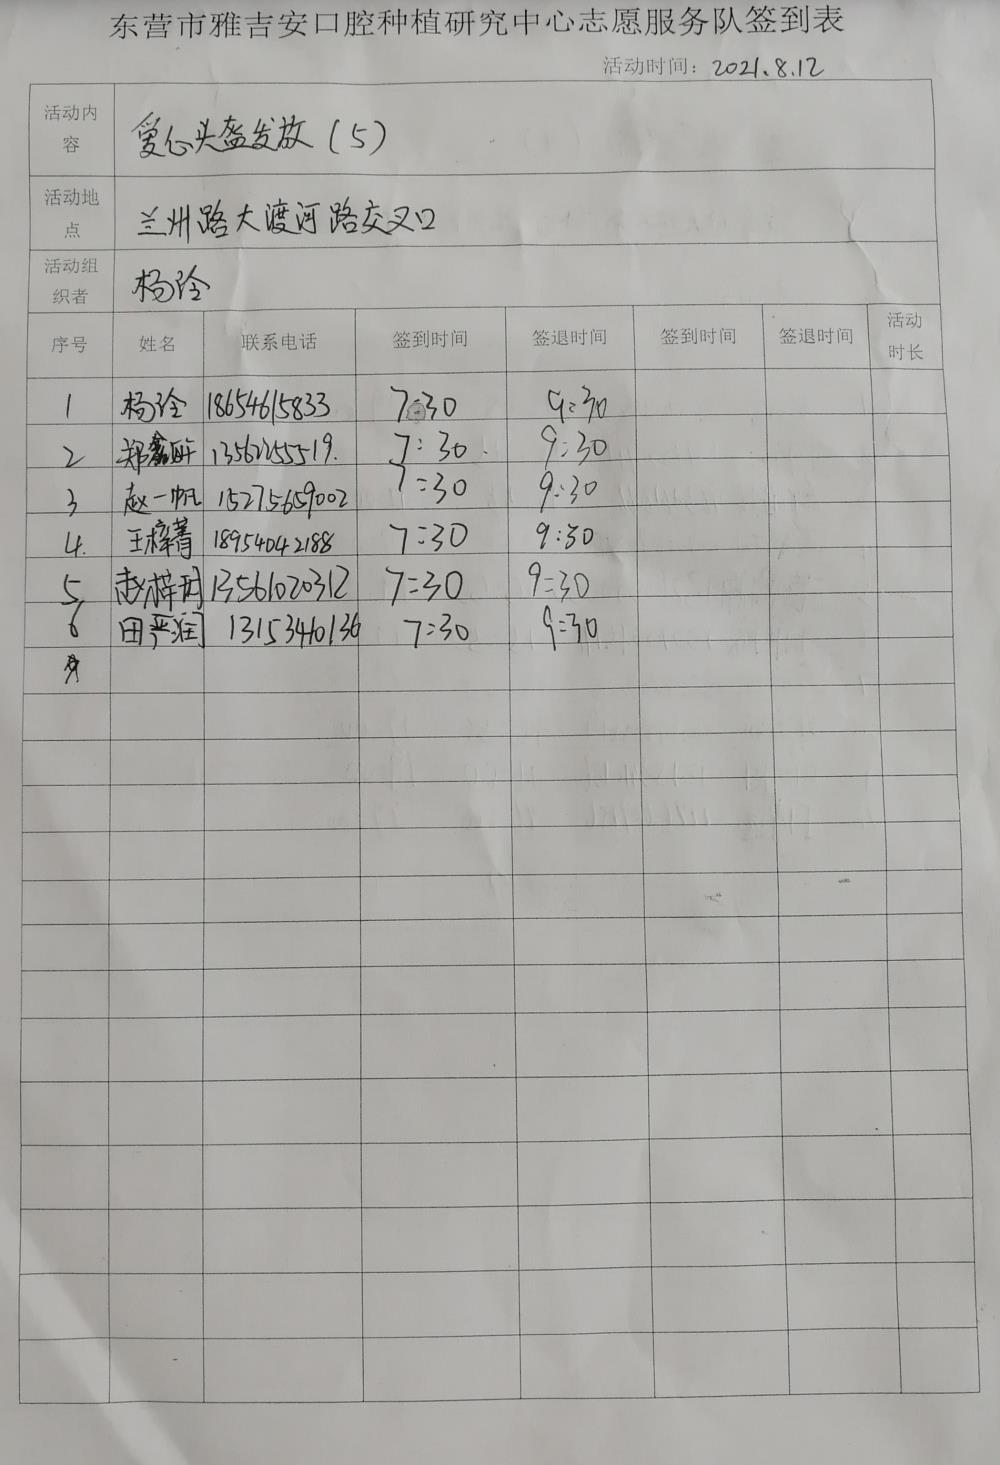 东营市雅吉安口腔种植研究中心志愿服务队签到表
活动时间：2021.8.12
活动内容 爱心头盔发放（5）
活动地点 兰州路大渡河路交叉口
活动组织者 杨玲
序号 姓名 联系电话 签到时间 签退时间 签到时间 签退时间 活动时长
1 杨玲 18654615833 7:30 9:30
2 郑鑫 13562255519. 7:30 9:30
3 赵一帆 15275659002 7:30 9:30
4. 王梓菁 18954042188 7:30 9:30
5 赵梓玥 13561020312 7:30 9:30
6 田严润 13153410136 7:30 9:30